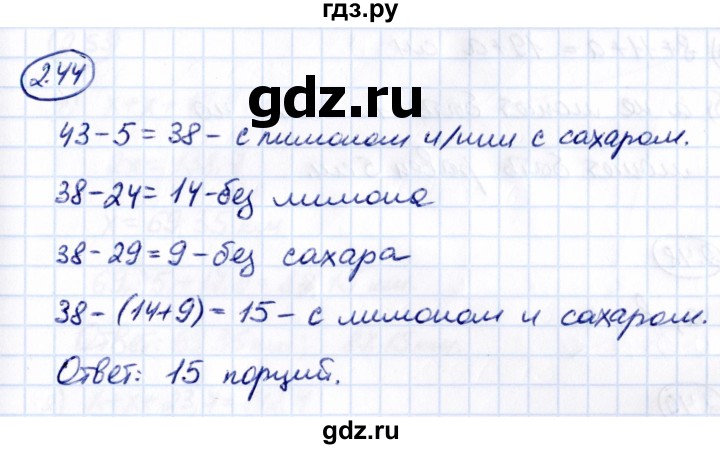 гдз.ру
2.44
gdz.ru
43-5=38- с лимоном и/или с сахаром.
38-24=14-без лимона
38-29=9-без сахара
38-(14+9)=15- с лимоном и сахаром.
Ответ: 15 порций.
gdz.ru